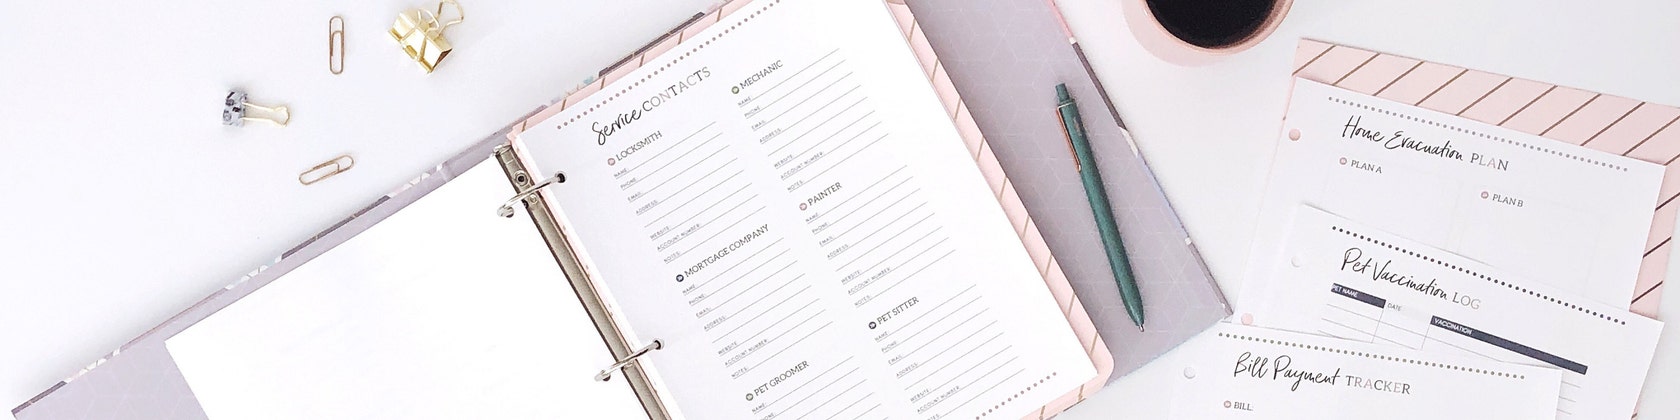 Service CONTACTS
LOCKSMITH
NAME:
PHONE:
EMAIL:
ADDRESS:
WEBSITE:
ACCOUNT NUMBER:
NOTES:
MORTGAGE COMPANY
NAME:
PHONE:
EMAIL:
ADDRESS:
WEBSITE:
ACCOUNT NUMBER:
NOTES:
PET GROOMER
NAME:
PHONE:
MECHANIC
NAME:
PHONE:
EMAIL:
ADDRESS:
WEBSITE:
ACCOUNT NUMBER:
NOTES:
PAINTER
NAME:
PHONE:
EMAIL:
ADDRESS:
WEBSITE:
ACCOUNT NUMBER:
NOTES:
PET SITTER
NAME:
PHONE:
EMAIL:
ADDRESS:
WEBSITE:
ACCOUNT NUMBER:
NOTES:
Home Evacuation PLAN
PLAN A
PLAN B
Pet Vaccination LOG
PET NAME
DATE
VACCINATION
Bill Payment TRACKER
BILL: